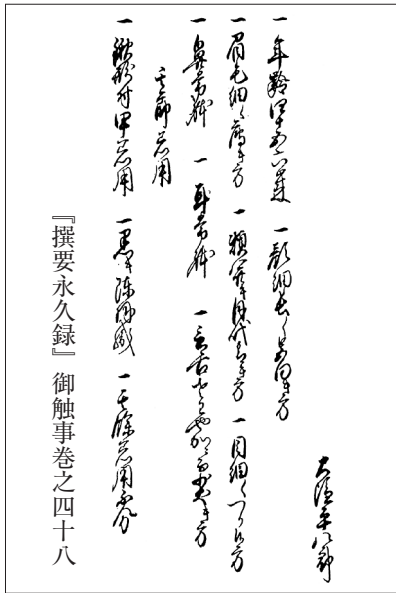 大塩平八郎
一 年齢四十五六歳 一 顔細長く色白き方
一 眉毛細く薄き方 一 額開き月代青き方 一 目細くつり候方
一 鼻常躰 一 耳常躰 一 言舌さわやか尖き方
其節着用
一 鍬形付甲着用 一 黒き陣羽織 一 其余着用不分
『撰要永久録』御触事巻之四十八